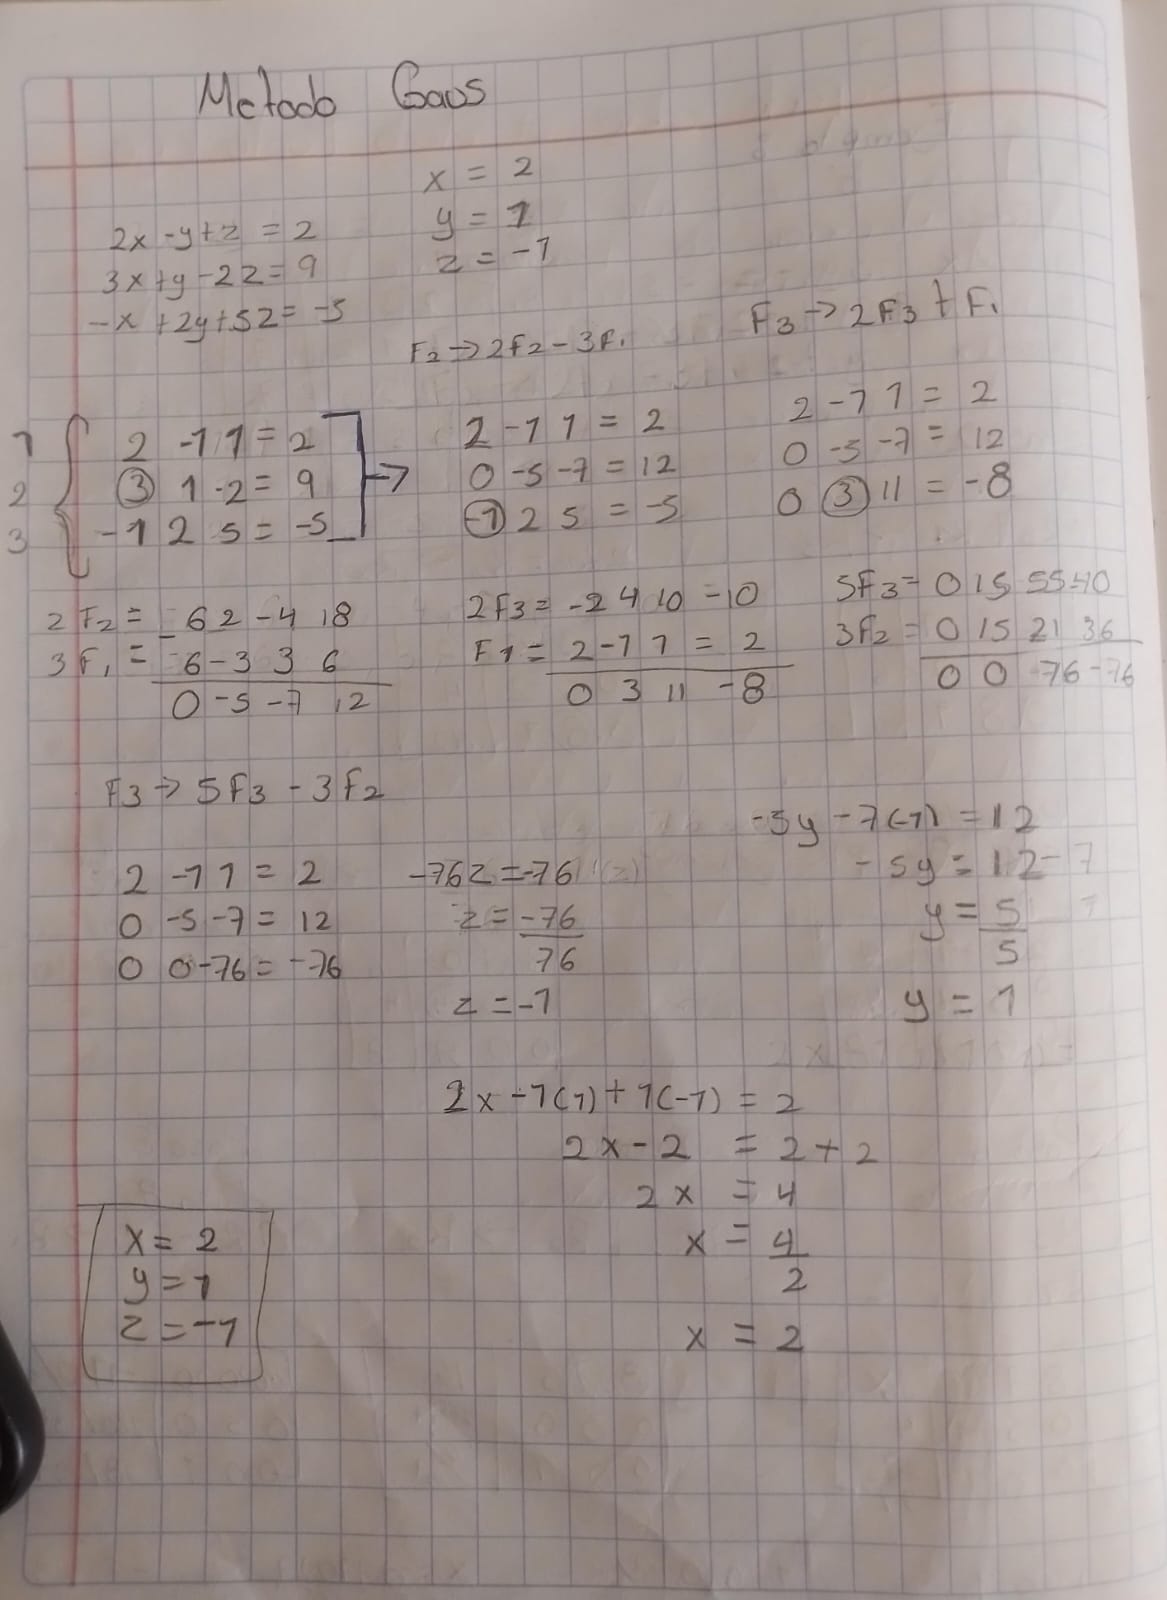 Metodo Gaus
x = 2
y = 1
z = -1
2x -y+z = 2
3x+y -2z=9
-x +2y+5z= -5
F2→2F2-3F1
F3→2F3+F1
1 2 -1 1=2
2 3 1 -2= 9
3 -1 2 5= -5
2 -1 1 = 2
0 -5 -7 = 12
-1 2 5 = -5
2 -1 1 = 2
0 -5 -7 = 12
0 3 11 = -8
2F2= 6 2 -4 18
3F1= 6 -3 3 6
0 -5 -7 12
2F3= -2 4 10 =10
F1= 2 -1 1 = 2
0 3 11 -8
5F3= 0 15 55 40
3F2= 0 15 21 36
0 0 -76 -76
F3→ 5F3 - 3F2
2 -1 1 = 2
0 -5 -7= 12
0 0 -76= -76
-76z=-76
z = -76
76
z = -1
-5y -7(-1) =12
-5y = 12-7
y = 5
5
y = 1
2x -1(1)+1(-1) = 2
2x-2 = 2+2
2x = 4
x = 4
2
x = 2
x= 2
y=1
z=-1